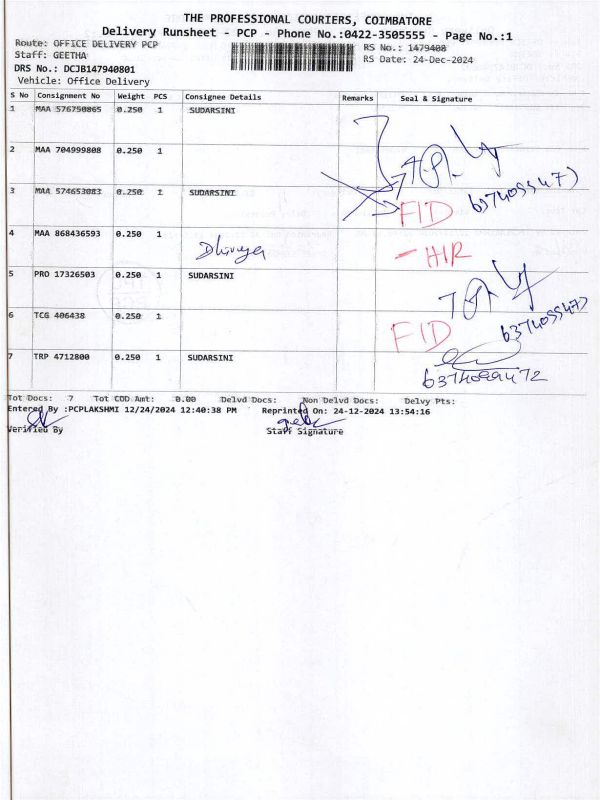 THE PROFESSIONAL COURIERS, COIMBATORE
Delivery Runsheet - PCP - Phone No.:0422-3505555 - Page No.:1
Route: OFFICE DELIVERY PCP
RS No.: 1479408
Staff: GEETHA
RS Date: 24-Dec-2024
DRS No.: DCJB147940801
Vehicle: Office Delivery
S No Consignment No Weight PCS Consignee Details Remarks Seal & Signature
1 MAA 576750865 0.250 1 SUDARSINI
2 MAA 704999808 0.250 1
3 MAA 574653083 0.250 1 SUDARSINI
FID
4 MAA 868436593 0.250 1
- HIR
5 PRO 17326503 0.250 1 SUDARSINI
6 TCG 406438 0.250 1
FID
7 TRP 4712800 0.250 1 SUDARSINI
6374099472
Tot Docs: 7 Tot COD Amt: 0.00 Delvd Docs: Non Delvd Docs: Delvy Pts:
Entered By :PCPLAKSHMI 12/24/2024 12:40:38 PM Reprinted On: 24-12-2024 13:54:16
Verified By Staff Signature